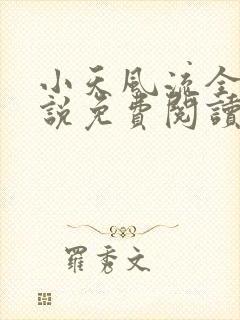 小天風流全
說免費閱讀
羅秀文